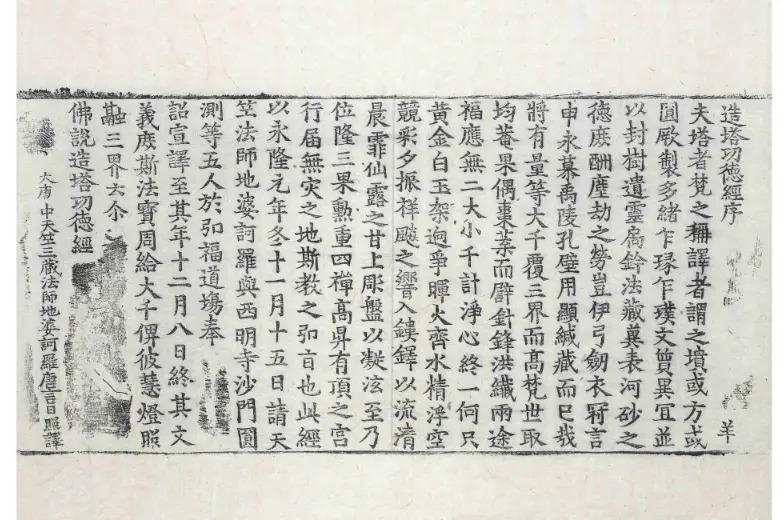 造塔功德經序 羊
夫塔者梵之稱譯者謂之墳或方或
圓厥製多緒乍琢乍璞文質異宜並
以封樹遺靈扃鈐法藏冀表河砂之
德庶酬塵劫之勞豈伊弓劒衣冠言
申永慕禹陵孔壁用顯緘藏而已哉
將有量等大千覆三界而高梵世取
均菴果偶棗葉而擗針鋒洪纖兩途
福應無二大小千計淨心終一何只
黃金白玉架逈爭暉火齊水精浮空
競彩夕振祥飈之響入鏤鐸以流清
晨霏仙露之甘上彫盤以凝泫至乃
位隆三果勳重四禪高昇有頂之宮
行屆無灾之地斯教之弘旨也此經
以永隆元年冬十一月十五日請天
竺法師地婆訶羅與西明寺沙門圓
測等五人於弘福道場奉
詔宣譯至其年十二月八日終其文
義庶斯法寶周給大千俾彼慧燈照
融三界六尒
佛說造塔功德經
大唐中天竺三藏法師地婆訶羅唐言日照譯